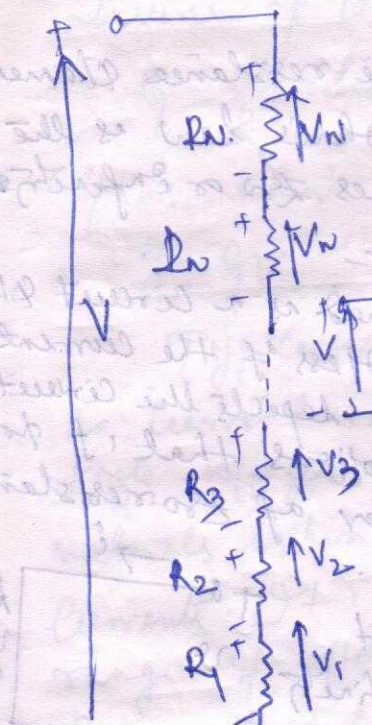 +
+
RN VN
-
+
RN VN
-
V
+ V
-
+
R3 V3
-
+
R2 V2
-
+
R1 V1